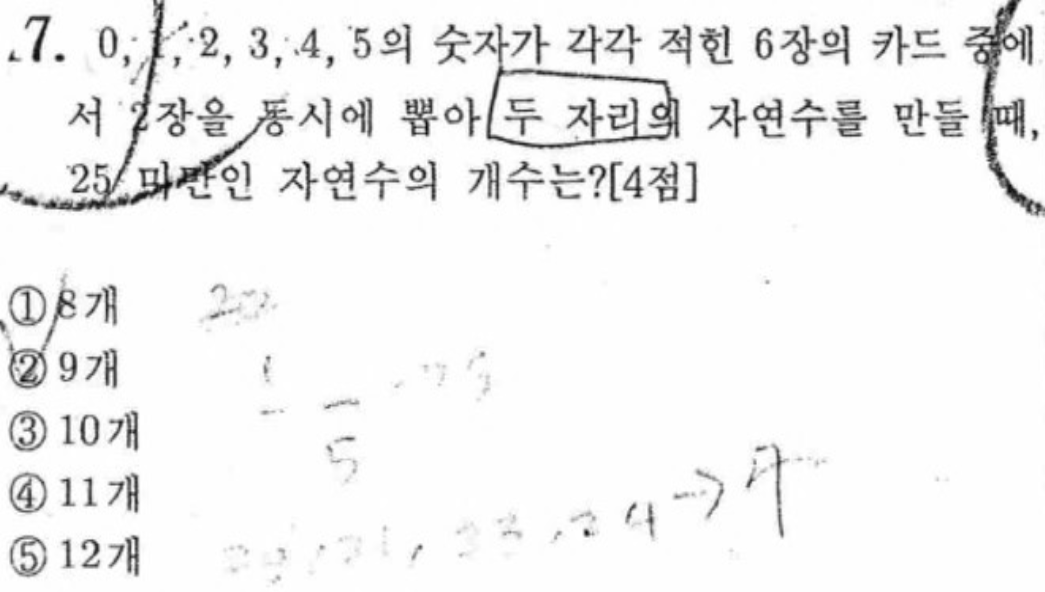 7. 0, 1, 2, 3, 4, 5의 숫자가 각각 적힌 6장의 카드 중에
서 2장을 동시에 뽑아 두 자리의 자연수를 만들 때,
25 미만인 자연수의 개수는?[4점]
① 8개
② 9개
③ 10개
④ 11개
⑤ 12개
1
5
20, 21, 23, 24 → 4